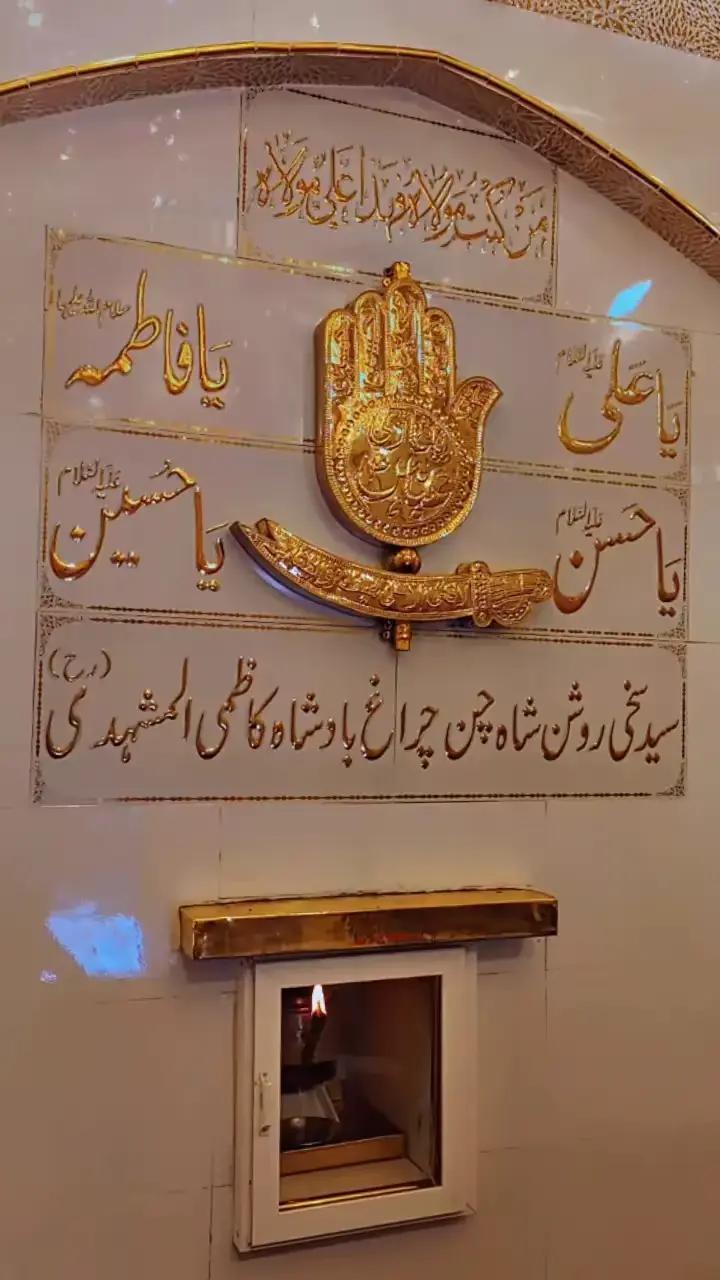 من كنت مولاه فهذا علي مولاه
یا علی علیہ السلام
یا فاطمہ سلام اللہ علیہا
یا حسن علیہ السلام
یا حسین علیہ السلام
سید سخی روشن شاہ چن چراغ بادشاہ کاظمی المشہدی (رح)